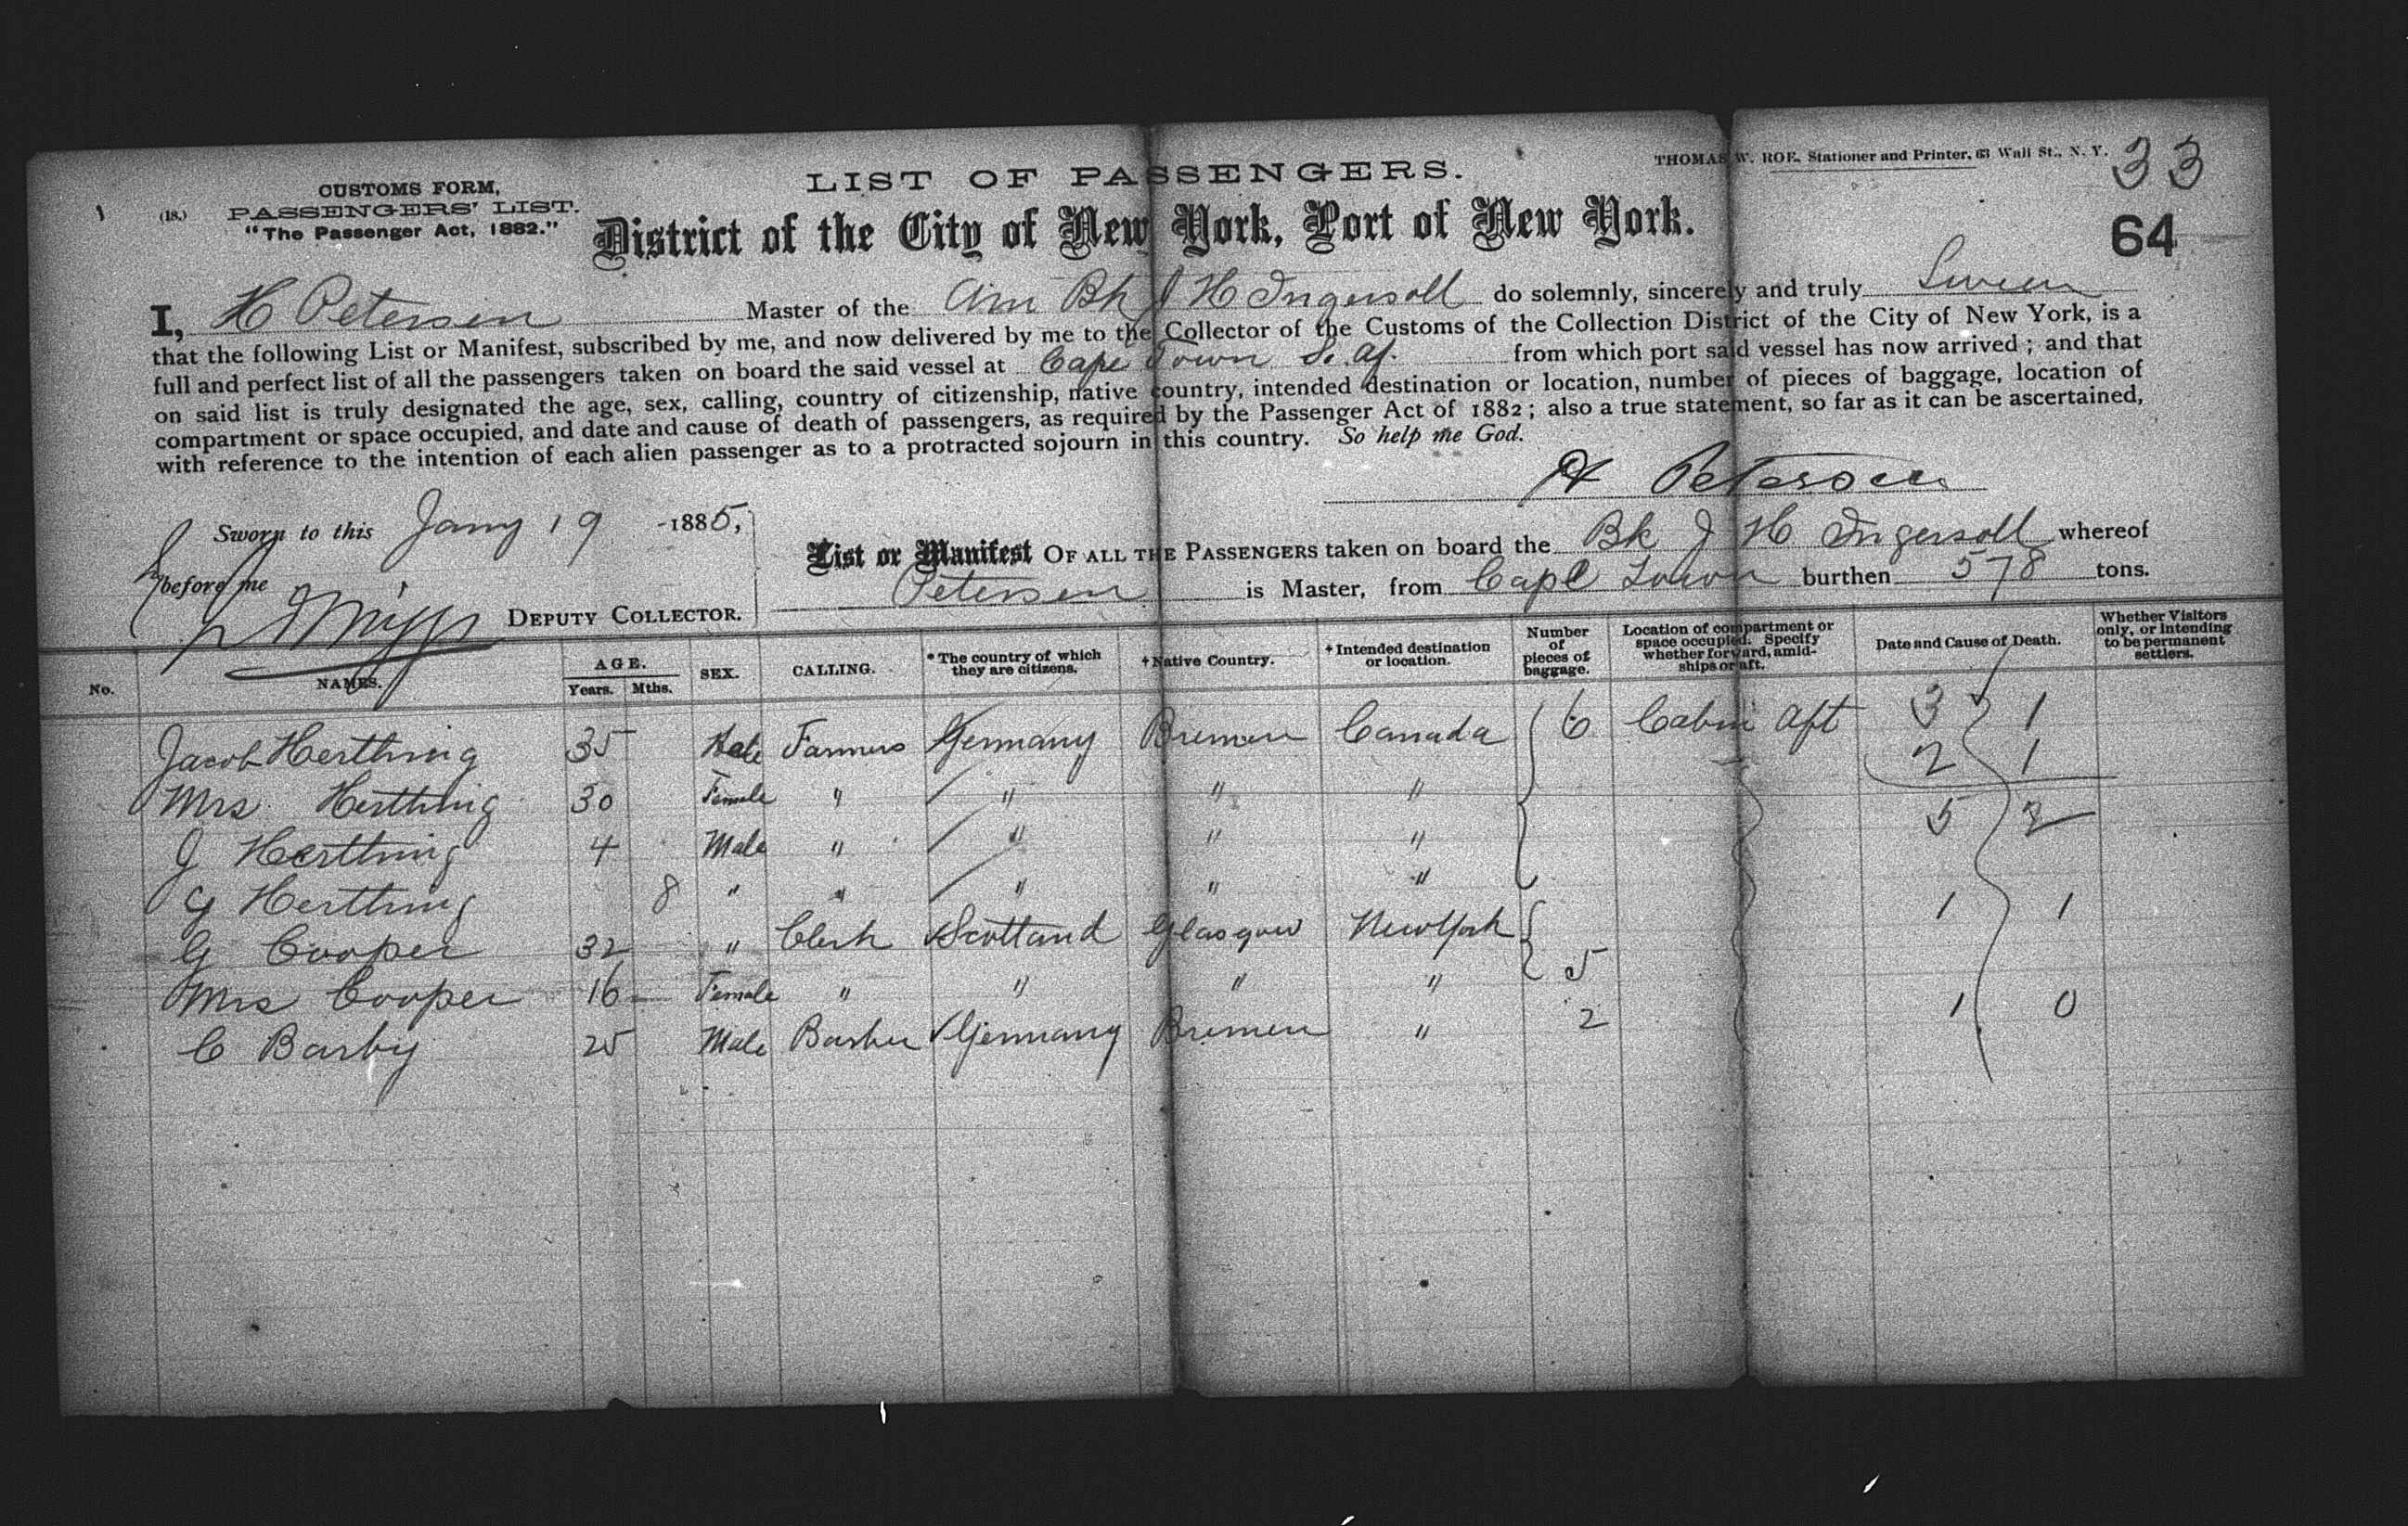 THOMAS W. ROE, Stationer and Printer, 63 Wall St., N. Y.
33
CUSTOMS FORM,
LIST OF PASSENGERS.
(18.) PASSENGERS' LIST.
"The Passenger Act, 1882."
64
District of the City of New York, Port of New York.
I, H Petersen Master of the Am Bk J H Ingersoll do solemnly, sincerely and truly Swear
that the following List or Manifest, subscribed by me, and now delivered by me to the Collector of the Customs of the Collection District of the City of New York, is a
full and perfect list of all the passengers taken on board the said vessel at Cape Town So. Af. from which port said vessel has now arrived; and that
on said list is truly designated the age, sex, calling, country of citizenship, native country, intended destination or location, number of pieces of baggage, location of
compartment or space occupied, and date and cause of death of passengers, as required by the Passenger Act of 1882; also a true statement, so far as it can be ascertained,
with reference to the intention of each alien passenger as to a protracted sojourn in this country. So help me God.
H Petersen
Sworn to this Jany 19 -1885,
before me
DEPUTY COLLECTOR.
List or Manifest OF ALL THE PASSENGERS taken on board the Bk J H Ingersoll whereof
Petersen is Master, from Cape Town burthen 578 tons.
No. NAMES. AGE. Years. Mths. SEX. CALLING. * The country of which they are citizens. † Native Country. † Intended destination or location. Number of pieces of baggage. Location of compartment or space occupied. Specify whether forward, amidships or aft. Date and Cause of Death. Whether Visitors only, or intending to be permanent settlers.
Jacob Herthing 35 Male Farmers Germany Bremen Canada 6 Cabin Aft 3 1
Mrs Herthing 30 Female " " " " 2 1
J Herthing 4 Male " " " " 5 2
G Herthing 8 " " " " "
G Cooper 32 " Clerk Scotland Glasgow New York 1 1
Mrs Cooper 16 Female " " " " 5
C Barby 25 Male Barber Germany Bremen " 2 1 0